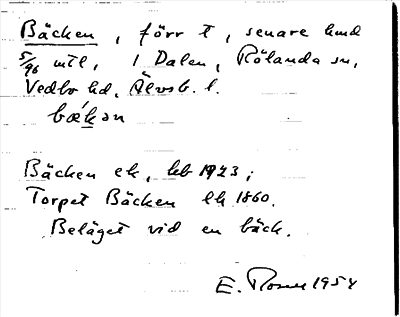 Bäcken, förr t, senare hmd
5/96 mtl, i Dalen, Rölanda sn,
Vedbo hd, Älvsb. l.
bækən
Bäcken ek, hb 1923;
Torpet Bäcken lh 1860.
Beläget vid en bäck.
E. Rosen 1954